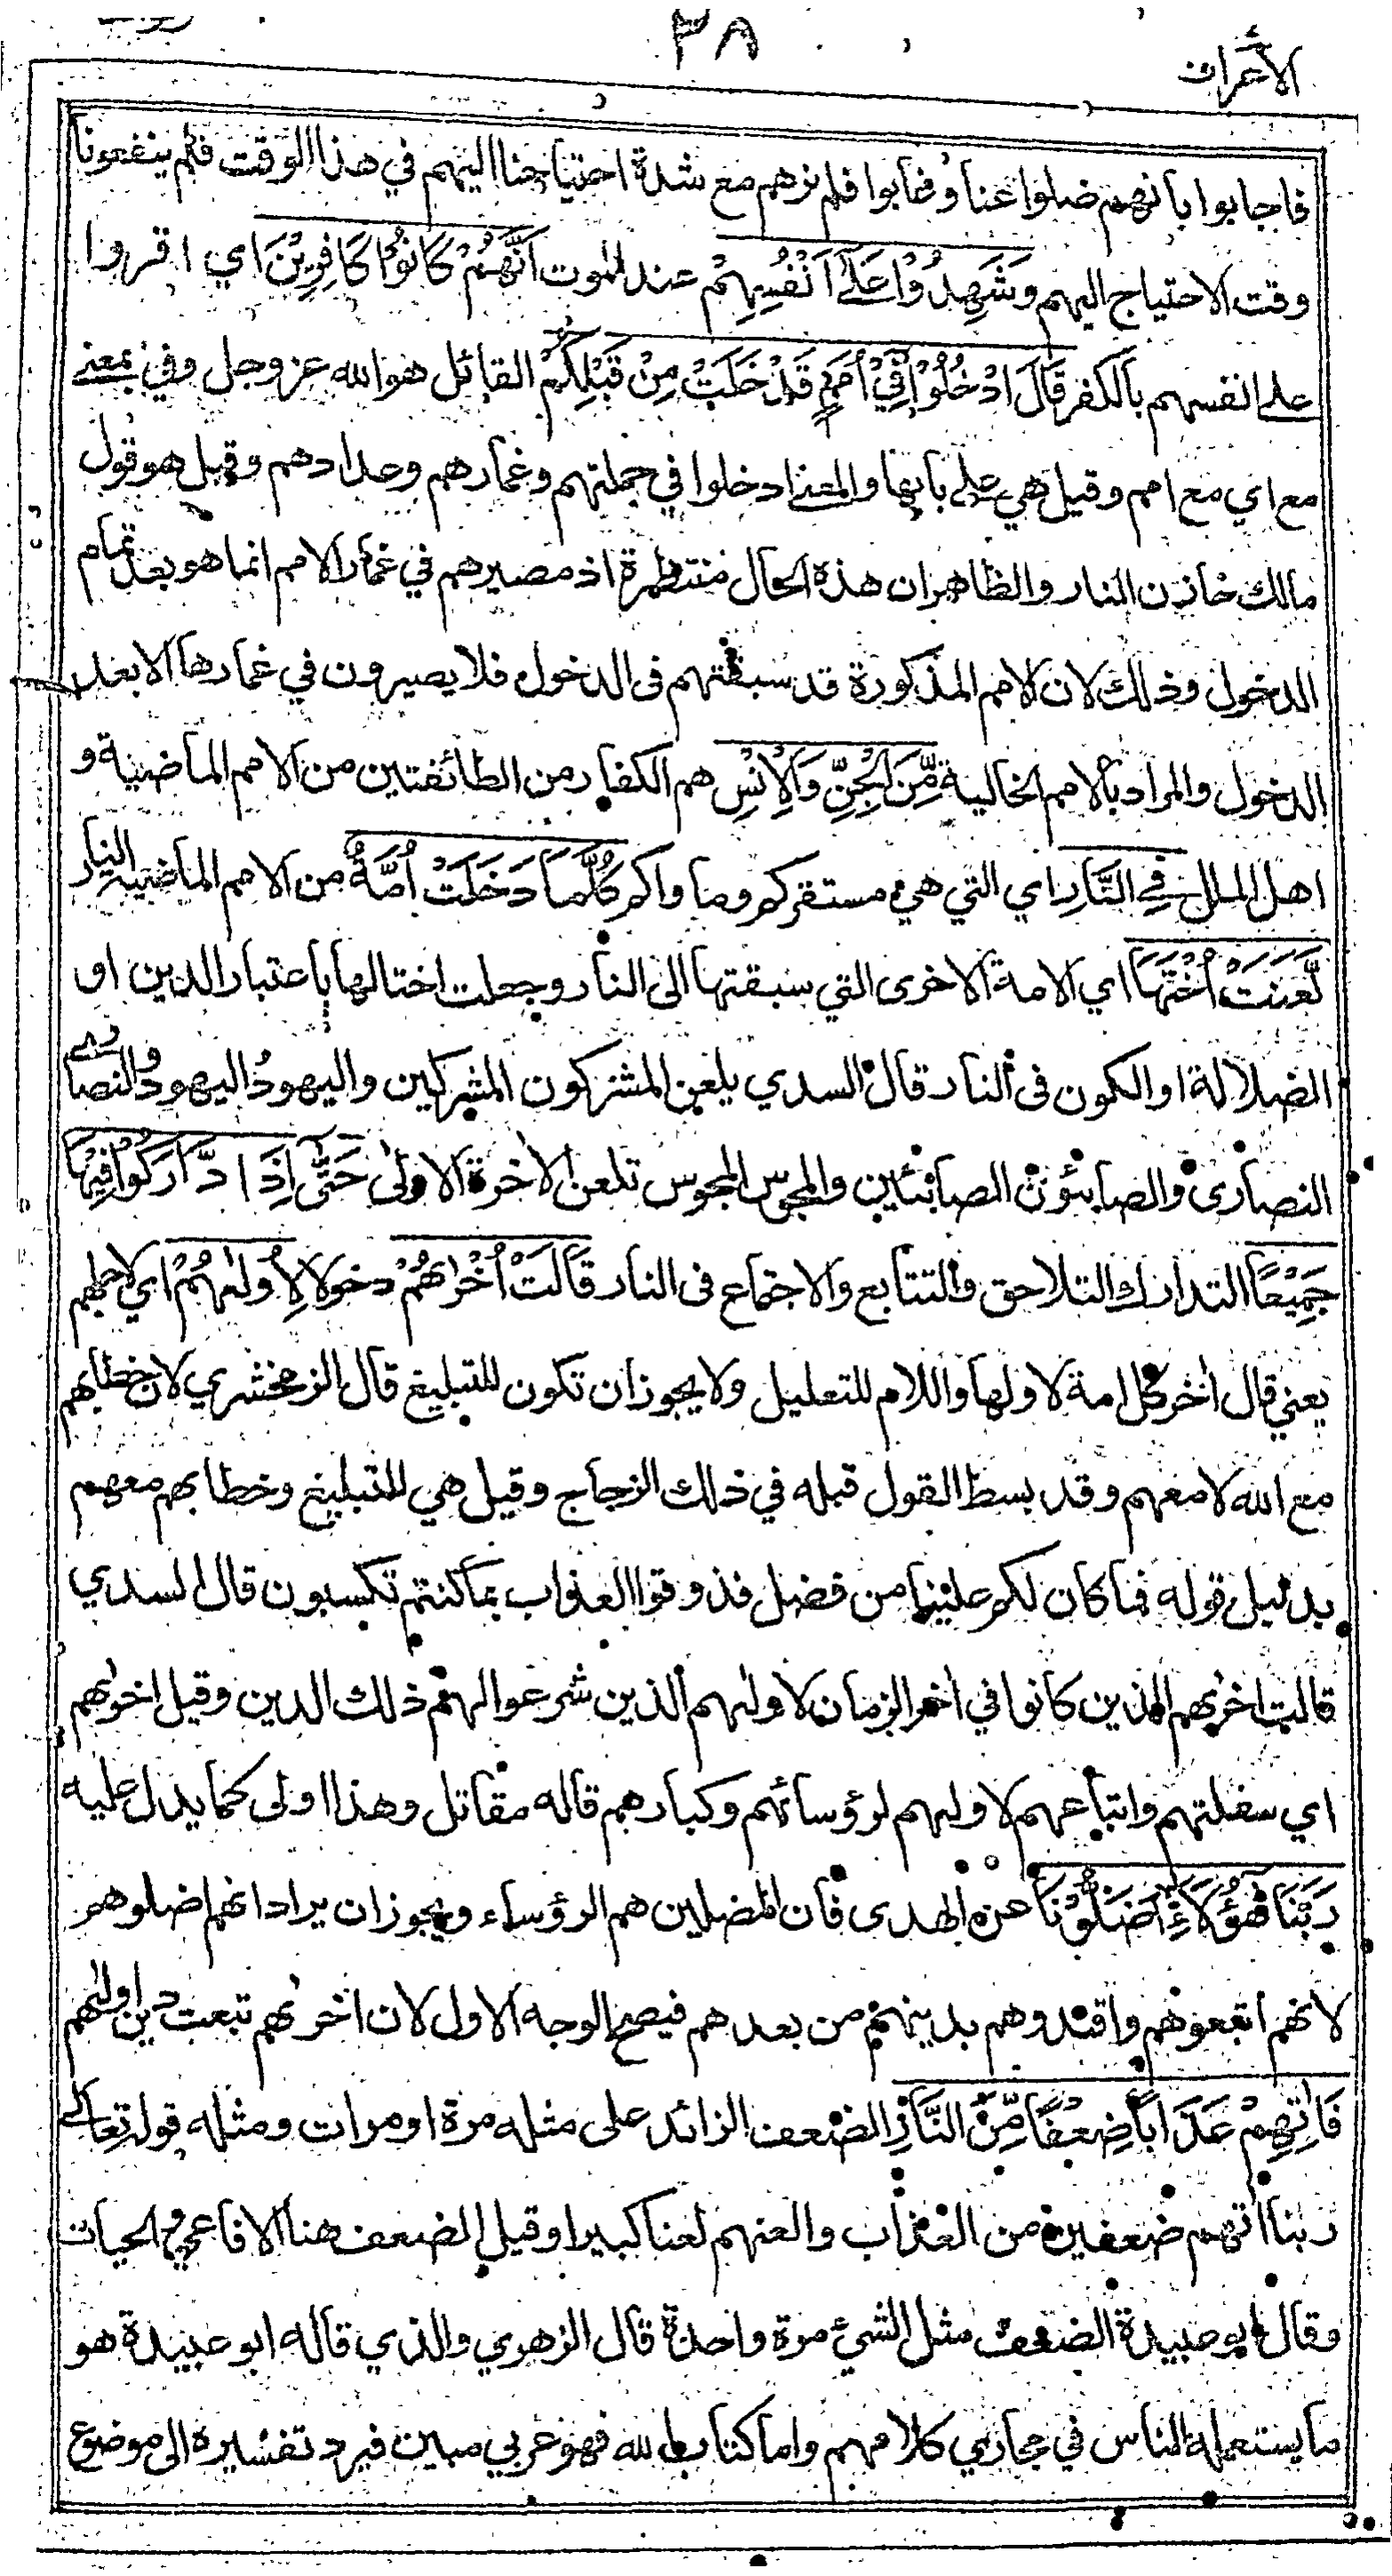 ٣٨
الأعراف
فاجابوا بانهم ضلوا عنا وغابوا فلم نرهم مع شدة احتياجنا اليهم في هذا الوقت فلم ينفعونا
وقت الاحتياج اليهم وَشَهِدُوْا عَلٰٓى اَنْفُسِهِمْ عند الموت اَنَّهُمْ كَانُوْا كَافِرِيْنَ اي اقروا
على انفسهم بالكفر قَالَ ادْخُلُوْا فِيْٓ اُمَمٍ قَدْ خَلَتْ مِنْ قَبْلِكُمْ القائل هو الله عز وجل وفي بمعنى
مع اي مع امم وقيل هي على بابها والمعنى ادخلوا في جملتهم وغمارهم وعدادهم وقيل هو قول
مالك خازن النار والظاهر ان هذه الحال منتظرة اذ مصيرهم في غمار الامم انما هو بعد تمام
الدخول وذلك لان الامم المذكورة قد سبقتهم فى الدخول فلا يصيرون في غمارها الا بعد
الدخول والمراد بالامم الخالية مِّنَ الْجِنِّ وَالْاِنْسِ هم الكفار من الطائفتين من الامم الماضية و
اهل الملل فِي النَّارِ اي التي هي مستقركم وماواكم كُلَّمَا دَخَلَتْ اُمَّةٌ من الامم الماضية النار
لَّعَنَتْ اُخْتَهَا اي الامة الاخرى التي سبقتها الى النار وجعلت اختا لها باعتبار الدين او
الضلالة او الكون فى النار قال السدي يلعن المشركون المشركين واليهود اليهود والنصارى
النصارى والصابئون الصابئين والمجوس المجوس تلعن الاخرة الاولى حَتّٰٓى اِذَا ادَّارَكُوْا فِيْهَا
جَمِيْعًا التدارك التلاحق والتتابع والاجتماع فى النار قَالَتْ اُخْرٰىهُمْ دخولا لِاُوْلٰىهُمْ اي لاجلهم
يعني قال اخر كل امة لاولها واللام للتعليل ولا يجوز ان تكون للتبليغ قال الزمخشري لان خطابهم
مع الله لا معهم وقد بسط القول قبله في ذلك الزجاج وقيل هي للتبليغ وخطابهم معهم
بدليل قوله فما كان لكم علينا من فضل فذوقوا العذاب بما كنتم تكسبون قال السدي
قالت اخرىهم الذين كانوا في اخر الزمان لاولىهم الذين شرعوا لهم ذلك الدين وقيل اخرىهم
اي سفلتهم واتباعهم لاولىهم لرؤسائهم وكبارهم قاله مقاتل وهذا اولى كما يدل عليه
رَبَّنَا هٰٓؤُلَآءِ اَضَلُّوْنَا عن الهدى فان المضلين هم الرؤساء ويجوز ان يراد انهم اضلوهم
لانهم اتبعوهم واقتدوهم بدينهم من بعدهم فيصح الوجه الاول لان اخرىهم تبعت دين اولىهم
فَاٰتِهِمْ عَذَابًا ضِعْفًا مِّنَ النَّارِ الضعف الزائد على مثله مرة او مرات ومثله قوله تعالى
ربنا اتهم ضعفين من العذاب والعنهم لعنا كبيرا وقيل الضعف هنا الافاعي والحيات
وقال ابو عبيدة الضعف مثل الشيء مرة واحدة قال الزهري والذي قاله ابو عبيدة هو
ما يستعمله الناس في مجازي كلامهم واما كتاب الله فهو عربي مبين فيرد تفسيره الى موضوع